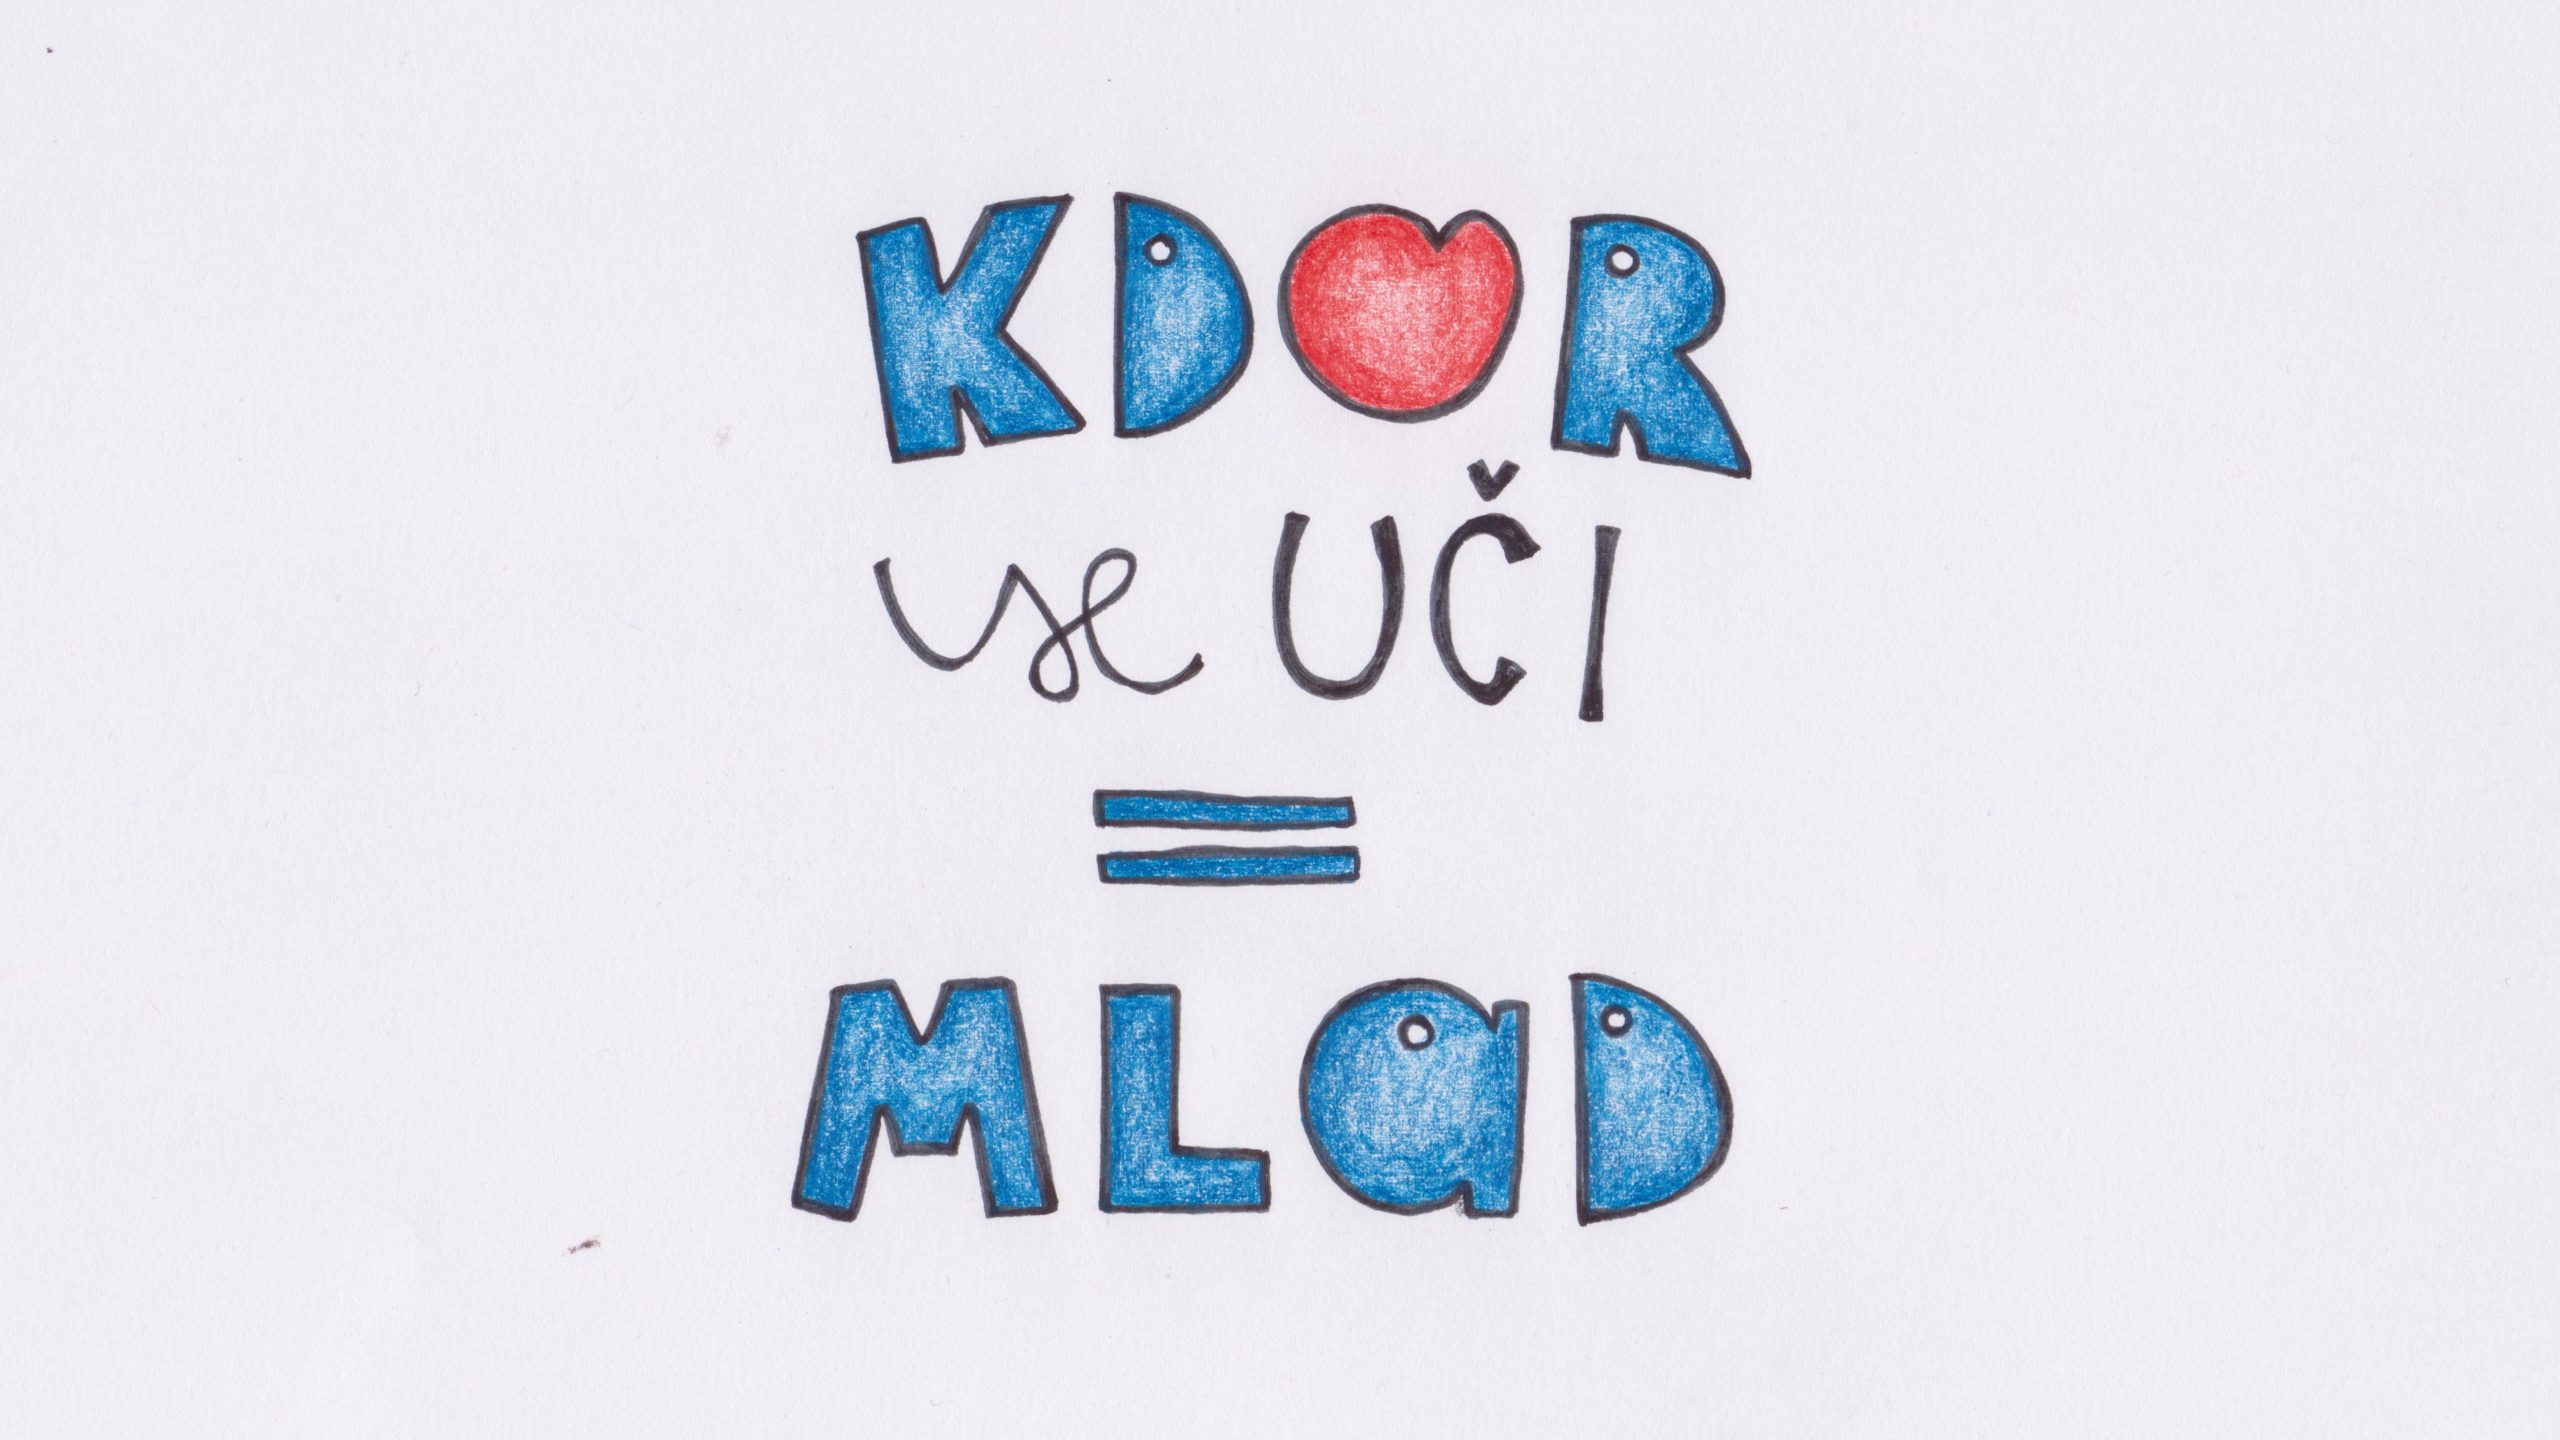 KDOR
se UČI
=
MLaD